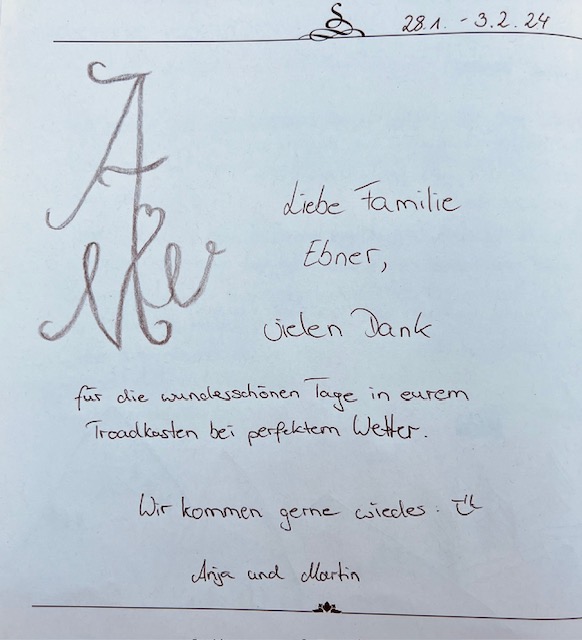 28.1. - 3.2.24
Liebe Familie
Ebner,
vielen Dank
für die wunderschönen Tage in eurem
Troadkasten bei perfektem Wetter.
Wir kommen gerne wieder :
Anja und Martin